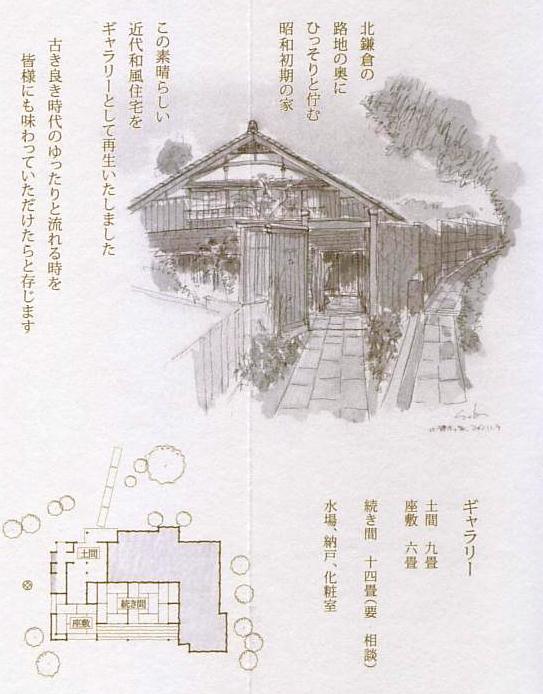 北鎌倉の
路地の奥に
ひっそりと佇む
昭和初期の家
この素晴らしい
近代和風住宅を
ギャラリーとして再生いたしました
古き良き時代のゆったりと流れる時を
皆様にも味わっていただけたらと存じます
ギャラリー
土間 九畳
座敷 六畳
続き間 十四畳(要 相談)
水場、納戸、化粧室
土間
続き間
座敷